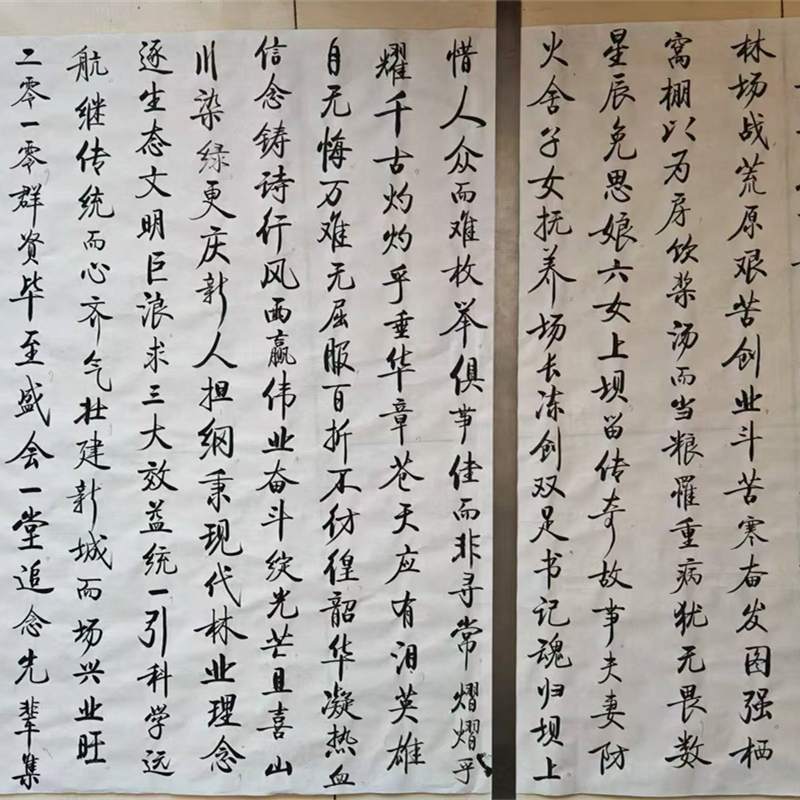 林场战荒原艰苦创业斗苦寒奋发图强栖
窝棚以为房饮浆汤而当粮罹重病犹无畏数
星辰免思娘六女上坝留传奇故事夫妻防
火舍子女抚养场长冻创双足书记魂归坝上
惜人众而难枚举俱事佳而非寻常熠熠乎
耀千古灼灼乎垂华章苍天应有泪英雄
自无悔万难无屈服百折不彷徨韶华凝热血
信念铸诗行风雨赢伟业奋斗绽光芒且喜山
川染绿更庆新人担纲秉现代林业理念
逐生态文明巨浪求三大效益统一引科学远
航继传统而心齐气壮建新城而场兴业旺
二零一零群资毕至盛会一堂追念先辈集